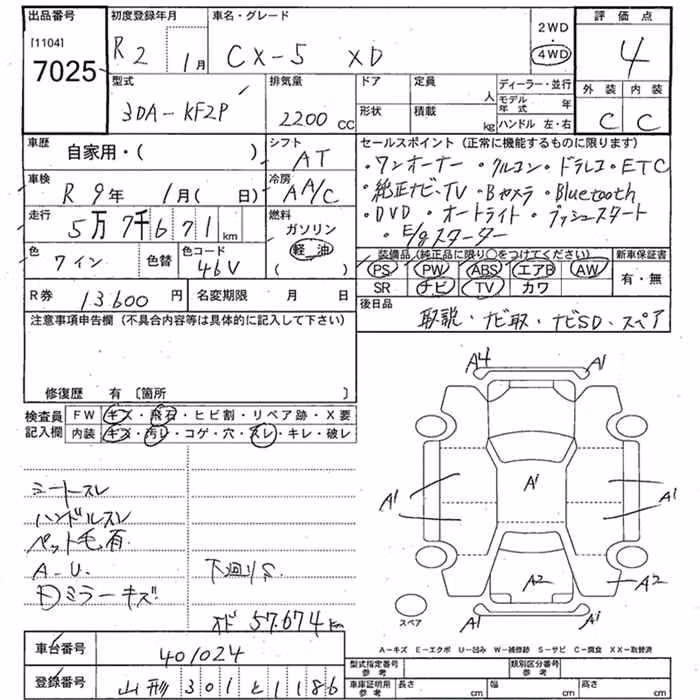 出品番号 初度登録年月 車名・グレード 2WD 評価点
[1104] 7025 R2 1月 CX-5 XD 4WD 4
型式 排気量 ドア 定員 人 ディーラー・並行 外装 内装
3DA-KF2P 2200cc 形状 積載 kg モデル年式 年 C C
ハンドル 左・右
車歴 自家用・( ) シフト AT セールスポイント (正常に機能するものに限ります)
・ワンオーナー ・クルコン ・ドラレコ ・ETC
車検 R9年 1月( 日) 冷房 AA/C ・純正ナビ、TV ・Bカメラ ・Bluetooth
走行 5万7千671km 燃料 ガソリン ・DVD ・オートライト ・プッシュスタート
軽油 ( ) ・E/gスターター
色 ワイン 色替 色コード 46V 装備品(純正品に限り○をつけてください) 新車保証書
PS PW ABS エアB AW 有・無
SR ナビ TV カワ
R券 13.600円 名変期限 月 日 後日品
取説・ナビ取・ナビSD・スペア
注意事項申告欄 (不具合内容等は具体的に記入して下さい)
修復歴 有 〔箇所 〕
検査員記入欄 FW キズ・飛石・ヒビ割・リペア跡・X要
内装 キズ・汚レ・コゲ・穴・スレ・キレ・破レ
A4 A1
A1 A1 A1
A2 A2
A1 A1
スペア
シートスレ
ハンドルスレ
ペット毛有
A.U.
下廻りS
ミラーキズ
オド 57.674km
A-キズ E-エクボ U-凹み W-補修跡 S-サビ C-腐食 XX-取替済
車台番号 401024
登録番号 山形301と1186
型式指定番号 参考 類別区分番号 参考
車庫証明用 参考 長さ cm 幅 cm 高さ cm